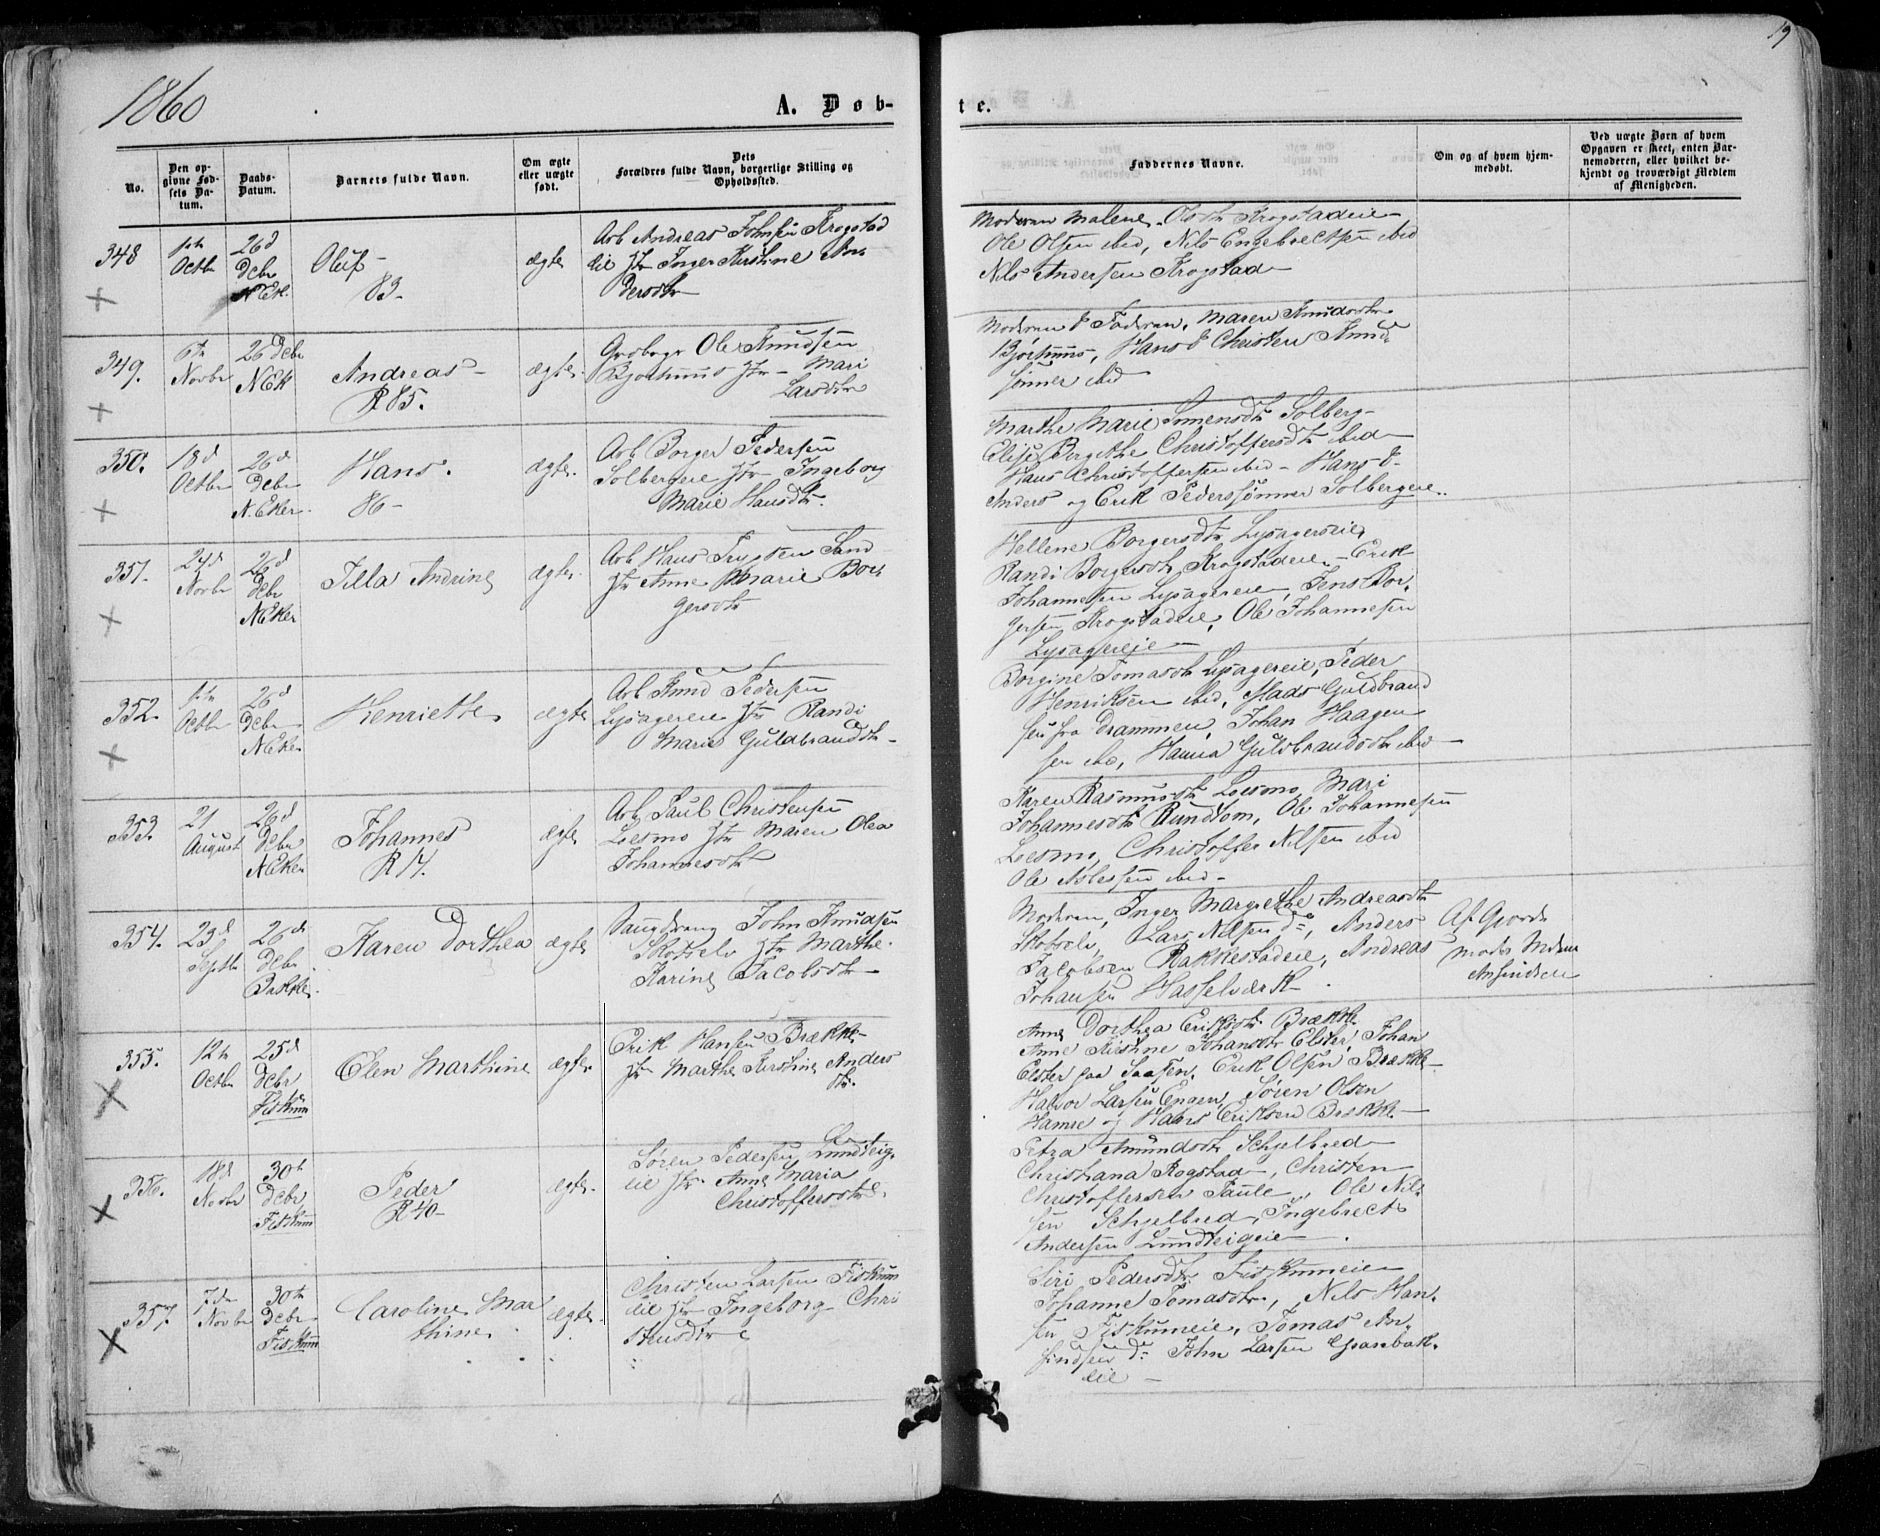 1860
19
A. Døb-
te.
No.
Den op-
givne Fød-
sels Da-
tum.
Daabs-
Datum.
Barnets fulde Navn.
Om ægte
eller uægte
født.
Dets
Forældres fulde Navn, borgerlige Stilling og
Opholdssted.
Faddernes Navne.
Om og af hvem hjem-
medøbt.
Ved uægte Børn af hvem
Opgaven er skeet, enten Bar-
nemoderen, eller hvilket be-
kjendt og troværdigt Medlem
af Menigheden.
348
1ste
Octbr
26d
Dcbr
N.Ek.
Oluf
83-
ægte
Arb Andreas Johnsen Krogstad
eie Inger Kirstine An
dersdtr
Moderen Malene Olsdtr Krogstadeie
Ole Olsen ibid, Nils Engebrectsen ibid
Nils Andersen Krogstad
349.
6te
Novbr
26 Dcbr
N.Ek
Andreas-
R 85.
ægte.
Grdbrgr Ole Knudsen
Bjørhuus Mari
Larsdtr
Moderen & Faderen, Maren Knudsdtr
Bjørhuus, Hans & Christen Knud
sønner ibid
350.
18d
Octbr
26d
Dcbr
N.Eker.
Hans.
86-
ægte.
Arb Borger Pedersen
Solbergeie Ingeborg
Marie Hansdtr.
Marthe Marie Simensdtr Solberg-
Elise Birgithe Christoffersdtr ibid
Hans Christoffersen ibid - Hans &
Anders og Erik Pederssønner Solbergeie.
351.
24d
Novbr
26d
Dcbr
N.Eker
Tilla Andrine
ægte.
Arb Hans Sand
Anne Marie Bor
gersdtr
Hellene Borgersdtr Lysagereie,
Randi Borgersdtr Krogstadeie - Erik
Johannesen Lysagereie, Jens Bor
gersen Krogstadeie, Ole Johannesen
Lysagereie
352.
1ste
Octbr
26d
Dcbr
N.Eker
Henriette
ægte
Arb Knud Pedersen
Lysagereie Randi
Marie Guldbrandsdtr-
Borgine Tomasdtr Lysagereie, Peder
Henriksen ibid, Mads Guldbrand
sen fra Drammen, Johan Haagen
sen ibid, Hanna Guldbrandsdtr ibid-
353.
21
August
26d
Dcbr
N.Eker
Johannes
R 17.
ægte
Arb Paul Christensen
Loesmo Maren Olea
Johannesdtr
Karen Rasmusdtr Loesmo, Mari
Johannesdtr Rundtom, Ole Johannesen
Loesmo, Christoffer Nilsen ibid
Ole Aslesen ibid-
354.
23d
Septbr
26d
Dcbr.
Bakke.
Karen Dorthea
ægte
Saugdreng John Knudsen
Skotselv Marthe
Karine Jacobsdtr
Moderen, Inger Margrethe Andreasdtr
Skotselv, Lars Nilsen do, Anders
Jacobsen Rakkestadeie, Andreas
Johansen Hasselværk.
Af Gjorde
moder Mdm
Amundsen
355.
12te
Octbr
25d
Dcbr
Fiskum
Elen Marthine
ægte.
Erik Hansen Brække
Marthe Kirstine Anders
dtr.
Anne Dorthea Eriksdtr Brække
Anne Kirstine Johansdtr Elster, Johan
Elster paa Saasen, Erik Olsen Brække-
Halvor Larsen Engen, Søren Olsen
Hamre og Hans Eriksen Brække-
356.
18d
Novbr
30te
Dcbr
Fiskum
Peder
R 40-
ægte.
Søren Pedersen Lundteig.
eie Anne Maria
Christoffersdtr.
Petra Amundsdtr Schjelbred
Christiana Rogstad, Christen
Christoffersen Taule, Ole Nil-
sen Schjelbred, Ingebrect
Andersen Lundteigeie.
357.
7de
Novbr
30te
Dcbr
Fiskum
Caroline Mar
thine
ægte.
Christen Larsen Fiskum
eie Ingeborg Chri
stensdtr
Siri Pedersdtr Fiskumeie
Johanne Tomasdtr, Nils Han-
sen Fiskumeie, Tomas An-
findsen do John Larsen Granbak-
eie